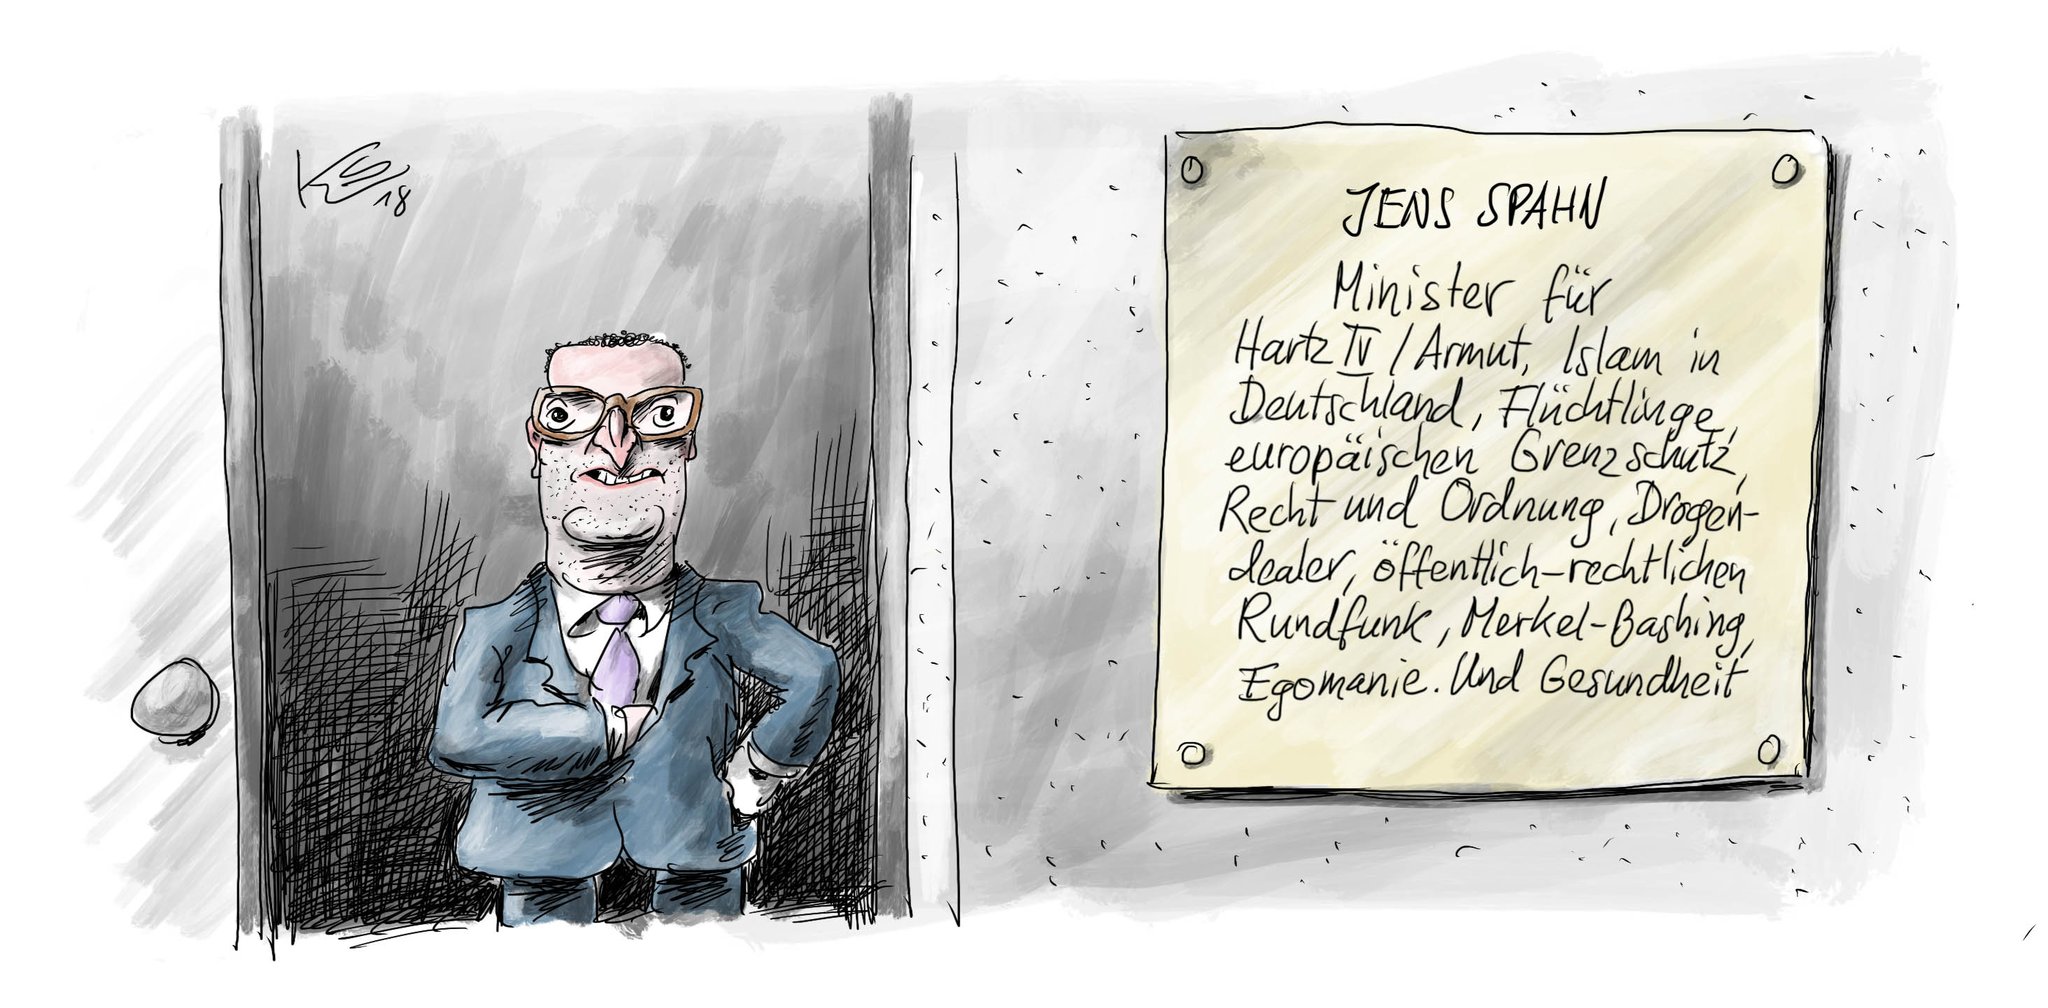 18
JENS SPAHN
Minister für
Hartz IV / Armut, Islam in
Deutschland, Flüchtlinge,
europäischen Grenzschutz,
Recht und Ordnung, Drogen-
dealer, öffentlich-rechtlichen
Rundfunk, Merkel-Bashing,
Egomanie. Und Gesundheit